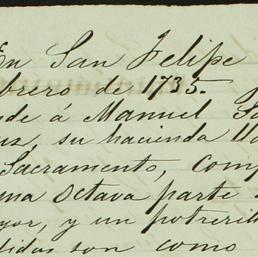 En San Felipe
brero de 1735.
de á Manuel Sa
uz, su hacienda lla
Sacramento, comp
una octava parte
yor, y un potrerill
didas son como